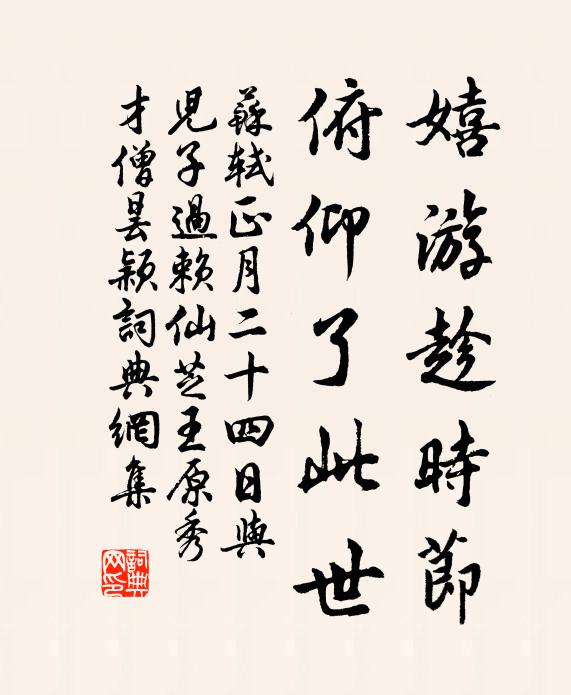 嬉游趁時節
俯仰了此世
蘇軾正月二十四日與
兒子過賴仙芝王原秀
才僧曇穎詞典網集
詞典網印